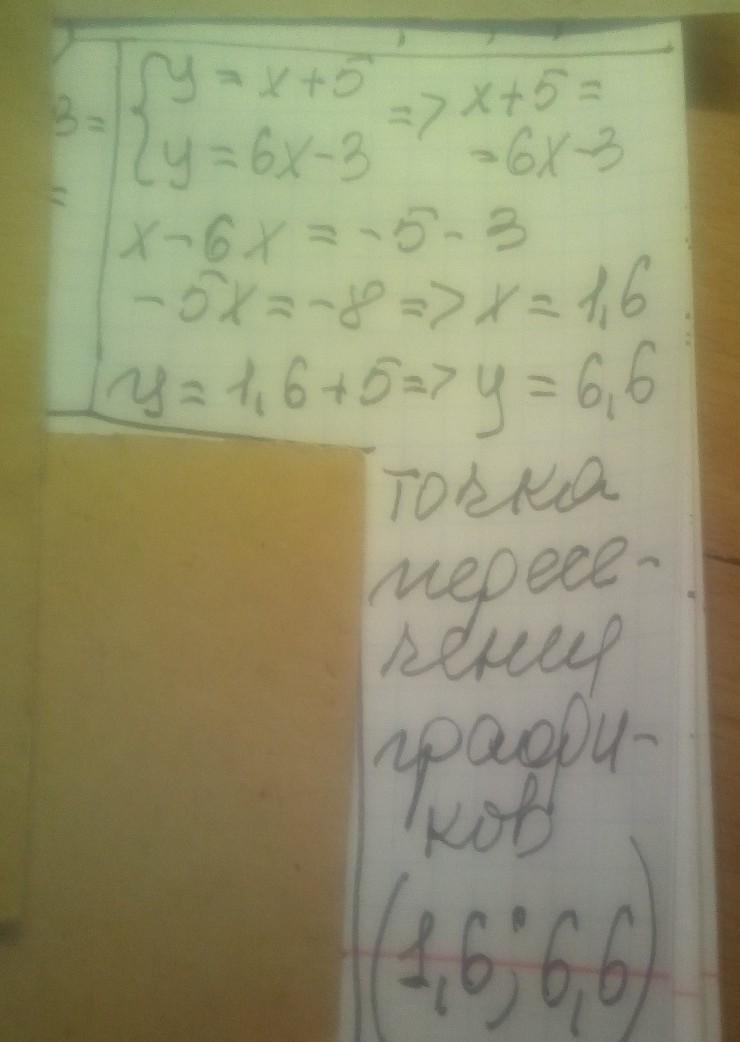 3=
=
{y = x+5
=> x+5 =
y = 6x-3
=6x-3
x-6x = -5-3
-5x = -8 => x = 1,6
y = 1,6+5 => y = 6,6
точка
пересе-
чения
графи-
ков
(1,6; 6,6)